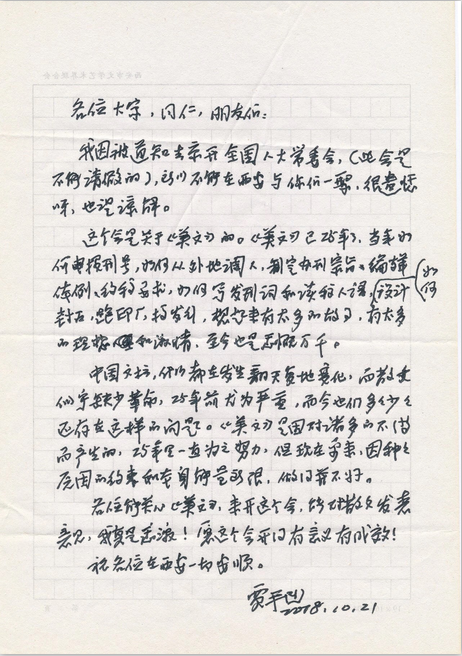 各位大家，同仁，朋友们：
我因被通知去京开全国人大常委会，（此会是
不能请假的），所以不能在西安与你们一聚，很遗憾
呀，也望谅解。
这个会是关于《美文》的。《美文》已25年了，当年如
何申报刊号，如何从外地调人，制定办刊宗旨、编辑
体例、约稿要求，如何写发刊词和读稿人语，如何设计
封面，跑印厂，搞发行，想起来有太多的故事，有太多
的理想和激情，至今也是感慨万千。
中国文坛，什么都在发生翻天复地变化，而散文
似乎缺少革命，25年前尤为严重，而今也们多多少少
还存在这样的问题。《美文》是因对诸多的不满
而产生的，25年里一直为之努力，但现在看来，因种种
原因的约束和本身能量所限，做得并不好。
各位能关心《美文》，来开这个会，能对散文发表
意见，我真是感激！愿这个会开得有意义有成效！
祝各位在西安一切安顺。
贾平凹
2018.10.21